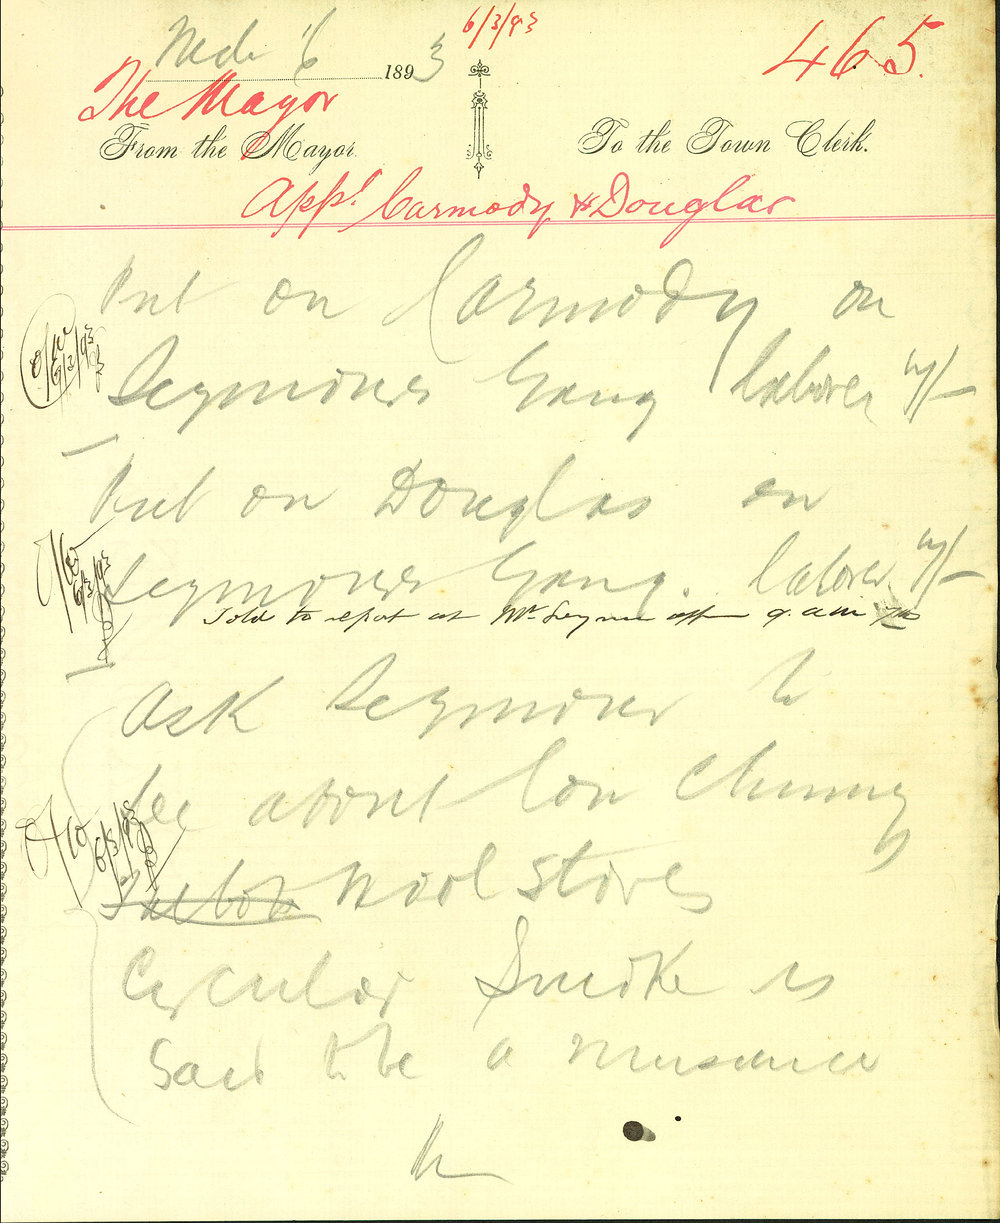 6/3/93
Mch 6 1893
465.
The Mayor
From the Mayor. To the Town Clerk.
Appt Carmody & Douglas
Put on Carmody on
Seymours Gang laborer 7/-
O/W 6/3/93
Put on Douglas on
Seymours Gang. laborer 7/-
O/W 6/3/93
Told to report at Mr Seymour 9. am
Ask Seymour to
see about Con Chimney
O/W 6/3/93
Wool Stores
Circular Smoke is
Said to be a nuisance